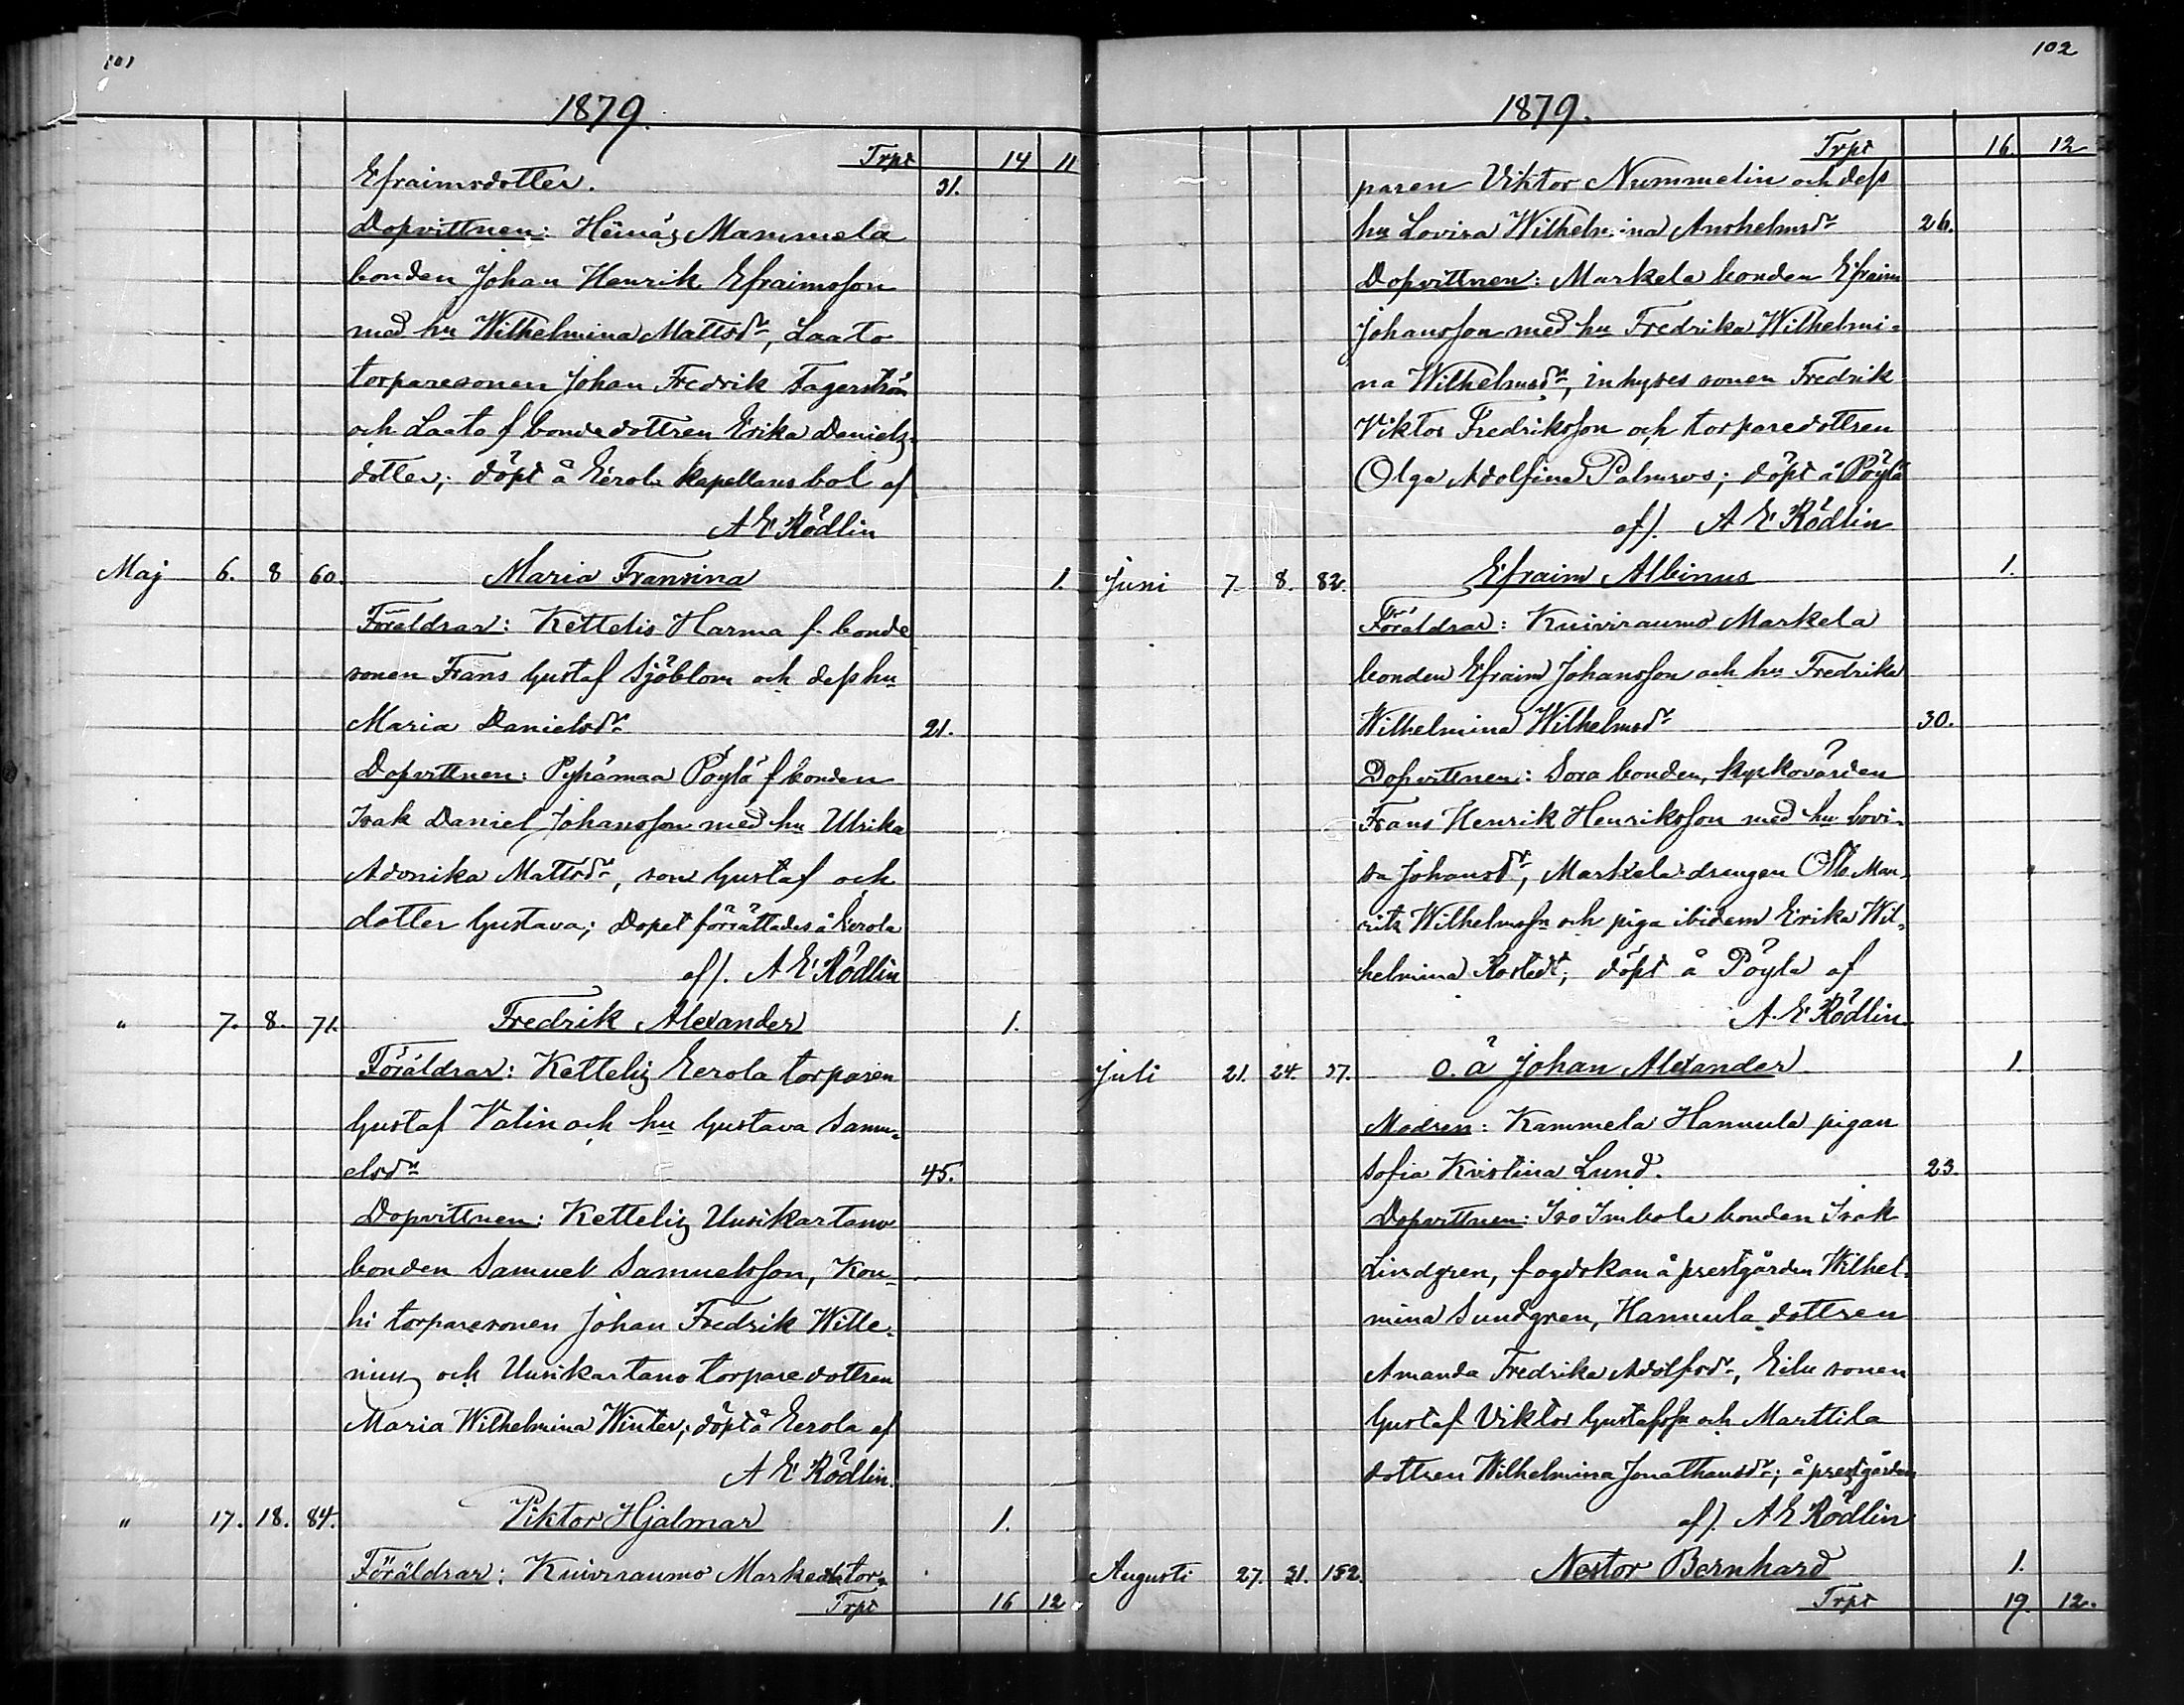 101
1879.
Trpt 14 11
Efraimsdotter. 31.
Dopvittnen: Heinäs Mammela
bonden Johan Henrik Efraimsson
med hu Wilhelmina Mattsdr, Laato
torparesonen Johan Fredrik Fagerström
och Laato f bondedottren Erika Daniels-
dotter; döpt å Eerola kapellansbol af
A E Rödlin
Maj 6. 8 60. Maria Fransina 1.
Föräldrar: Kettelis Harma f. bonde
sonen Frans Gustaf Sjöblom och dess hu
Maria Danielsdr 21.
Dopvittnen: Pyhämaa Pöylä f bonden
Isak Daniel Johansson med hu Ulrika
Advnika Mattsdr, son Gustaf och
dotter Gustava; Dopet förrättades å Eerola
af). A E Rödlin
" 7. 8. 71. Fredrik Alexander 1.
Föräldrar: Kettelis Eerola torparen
Gustaf Valin och hu Gustava Samu-
elsdr 45.
Dopvittnen: Kettelis Uusikartano
bonden Samuel Samuelsson, Kou-
hi torparesonen Johan Fredrik Wille-
nius och Uusikartano torparedottren
Maria Wilhelmina Winter; döpt å Eerola af
A E Rödlin.
" 17. 18. 84. Viktor Hjalmar 1.
Föräldrar: Kuivraumo Markela tor-
Trpt 16 12
102
1879.
Trpt 16. 12
paren Viktor Nummelin och dess
hu Lovisa Wilhelmina Anshelmsdr 26.
Dopvittnen: Markela bonden Efraim
Johansson med hu Fredrika Wilhelmi-
na Wilhelmsdr, inhyses sonen Fredrik
Viktor Fredriksson och torparedottren
Olga Adolfina Palmros; döpt å Pöylä
af). A E Rödlin
Juni 7. 8. 82. Efraim Albinus 1.
Föräldrar: Kuivraumo Markela
bonden Efraim Johansson och hu Fredrika
Wilhelmina Wilhelmsdr 30.
Dopvittnen: Sora bonden, kyrkovärden
Frans Henrik Henriksson med hu Lovi-
sa Johansdr, Markela drengen Otto Mau-
ritz Wilhelmssn och piga ibidem Erika Wil-
helmina Rostedt; döpt å Pöylä af
A. E Rödlin.
Juli 21. 24. 37. o. ä Johan Alexander 1.
Modren: Kammela Hannula pigan
Sofia Kristina Lund. 23.
Dopvittnen: Iso Imbola bonden Isak
Lindgren, fogdskan å prestgården Wilhel-
mina Sundgren, Hannula dottren
Amanda Fredrika Adolfsdr, Eilu sonen
Gustaf Viktor Gustafssn och Marttila
dottren Wilhelmina Jonathansdr; å prestgården
af). A E Rödlin
Augusti 27. 31. 152. Nestor Bernhard 1.
Trpt 19. 12.